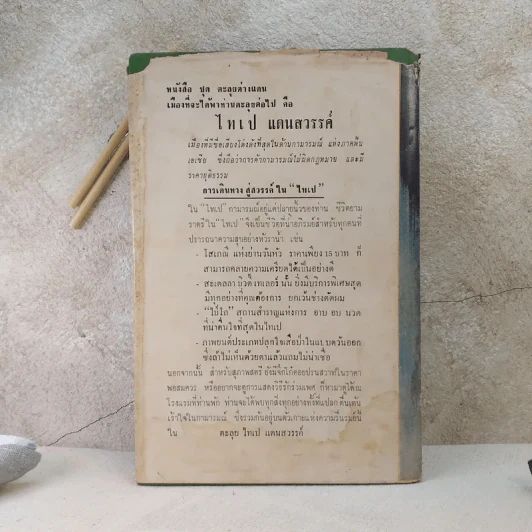 หนังสือ ชุด ตะลุยต่างแดน
เมืองที่จะได้พาท่านตะลุยต่อไป คือ
ไทเป แดนสวรรค์
เมืองที่มีชื่อเสียงโด่งดังที่สุดในด้านกามารมณ์ แห่งภาคพื้น
เอเซีย ซึ่งถือว่าการค้ากามารมณ์ไม่ผิดกฎหมาย และมี
ราคายุติธรรม
การเดินทาง สู่สวรรค์ ใน "ไทเป"
ใน "ไทเป" กามารมณ์อยู่แค่ปลายนิ้วของท่าน ชีวิตยาม
ราตรี ใน "ไทเป" จึงเป็นชีวิตที่น่าอภิรมย์สำหรับทุกคนที่
ปรารถนาความสุขอย่างหัวราน้ำ เช่น
- โสเภณี แห่งย่านวันหัว ราคาเพียง 15 บาท ก็
สามารถคลายความเครียดได้เป็นอย่างดี
- สะเดลลา บิวตี้ พาเลอร์ นั้น ยิ่งมีบริการพิเศษสุด
มีทุกอย่างที่คุณต้องการ ยกเว้นช่างตัดผม
- สถานสำราญแห่งการ อาบ อบ นวด
ที่น่าตื่นใจที่สุดในไทเป
- ภาพยนต์ประเภทปลุกใจเสือป่าในแถบตวันออก
ซึ่งถ้าไม่เห็นด้วยตาแล้วแทบไม่น่าเชื่อ
นอกจากนั้น สำหรับสุภาพสตรี ยังมีจิกโก๋คอยปรนสวาทในราคา
พอสมควร หรืออยากจะดูการแสดงวิธีรักร่วมเพศ ก็หามาดูได้ณ
โรงแรมที่ท่านพัก ท่านจะได้พบทุกสิ่งทุกอย่างทั้งที่แปลก ตื่นเต้น
เร้าใจในกามารมณ์ ซึ่งรวมกันอยู่บนตัวเกาะแห่งความรื่นรมย์นี้
ใน ตะลุย ไทเป แดนสวรรค์